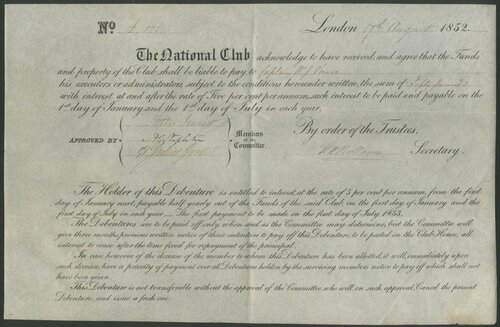 No
London 17th August 1852.
The National Club acknowledge to have received, and agree that the Funds
and property of the Club, shall be liable to pay, to Captain
his executors or administrators, subject to the conditions hereunder written, the sum of Fifty pounds
with interest at and after the rate of Five per cent per annum, such interest to be paid and payable on the
1st day of January and the 1st day of July in each year.
By order of the Trustees.
APPROVED BY
Members
of the
Committee.
Secretary.
The Holder of this Debenture is entitled to interest, at the rate of 5 per cent per annum, from the first
day of January next, payable half yearly out of the Funds of the said Club, on the first day of January and the
first day of July in each year. The first payment to be made on the first day of July 1853.
The Debentures are to be paid off, only when and as the Committee may determine, but the Committee will
give three months previous written notice of their intention to pay off this Debenture, to be posted in the Club House, all
interest to cease after the time fixed for repayment of the principal.
In case however of the decease of the member to whom this Debenture has been allotted, it will, immediately upon
such decease, have a priority of payment over all Debentures held by the surviving members notice to pay off which shall not
have been given.
This Debenture is not transferable without the approval of the Committee, who will, on such approval, Cancel the present
Debenture, and issue a fresh one.